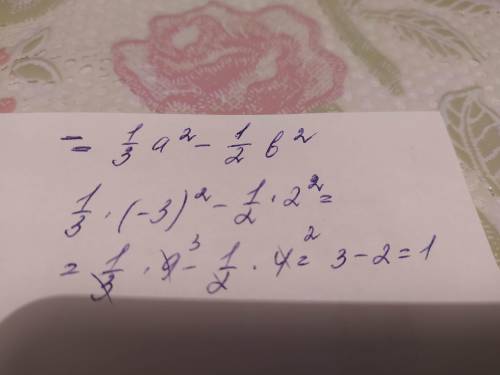 = 1/3 a² - 1/2 b²
1/3 · (-3)² - 1/2 · 2² =
= 1/3 · 9 ³ - 1/2 · 4 ² = 3 - 2 = 1